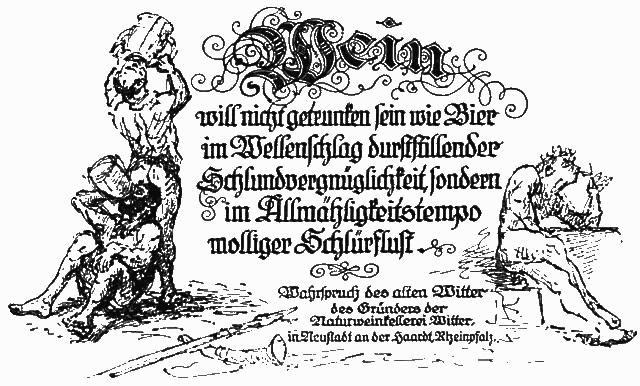 Wein
will nicht getrunken sein wie Bier
im Wellenschlag durststillender
Schlundvergnüglichkeit, sondern
im Allmähligkeitstempo
molliger Schlürflust.
Wahrspruch des alten Witter
des Gründers der
Naturweinkellerei Witter,
in Neustadt an der Haardt, Rheinpfalz.